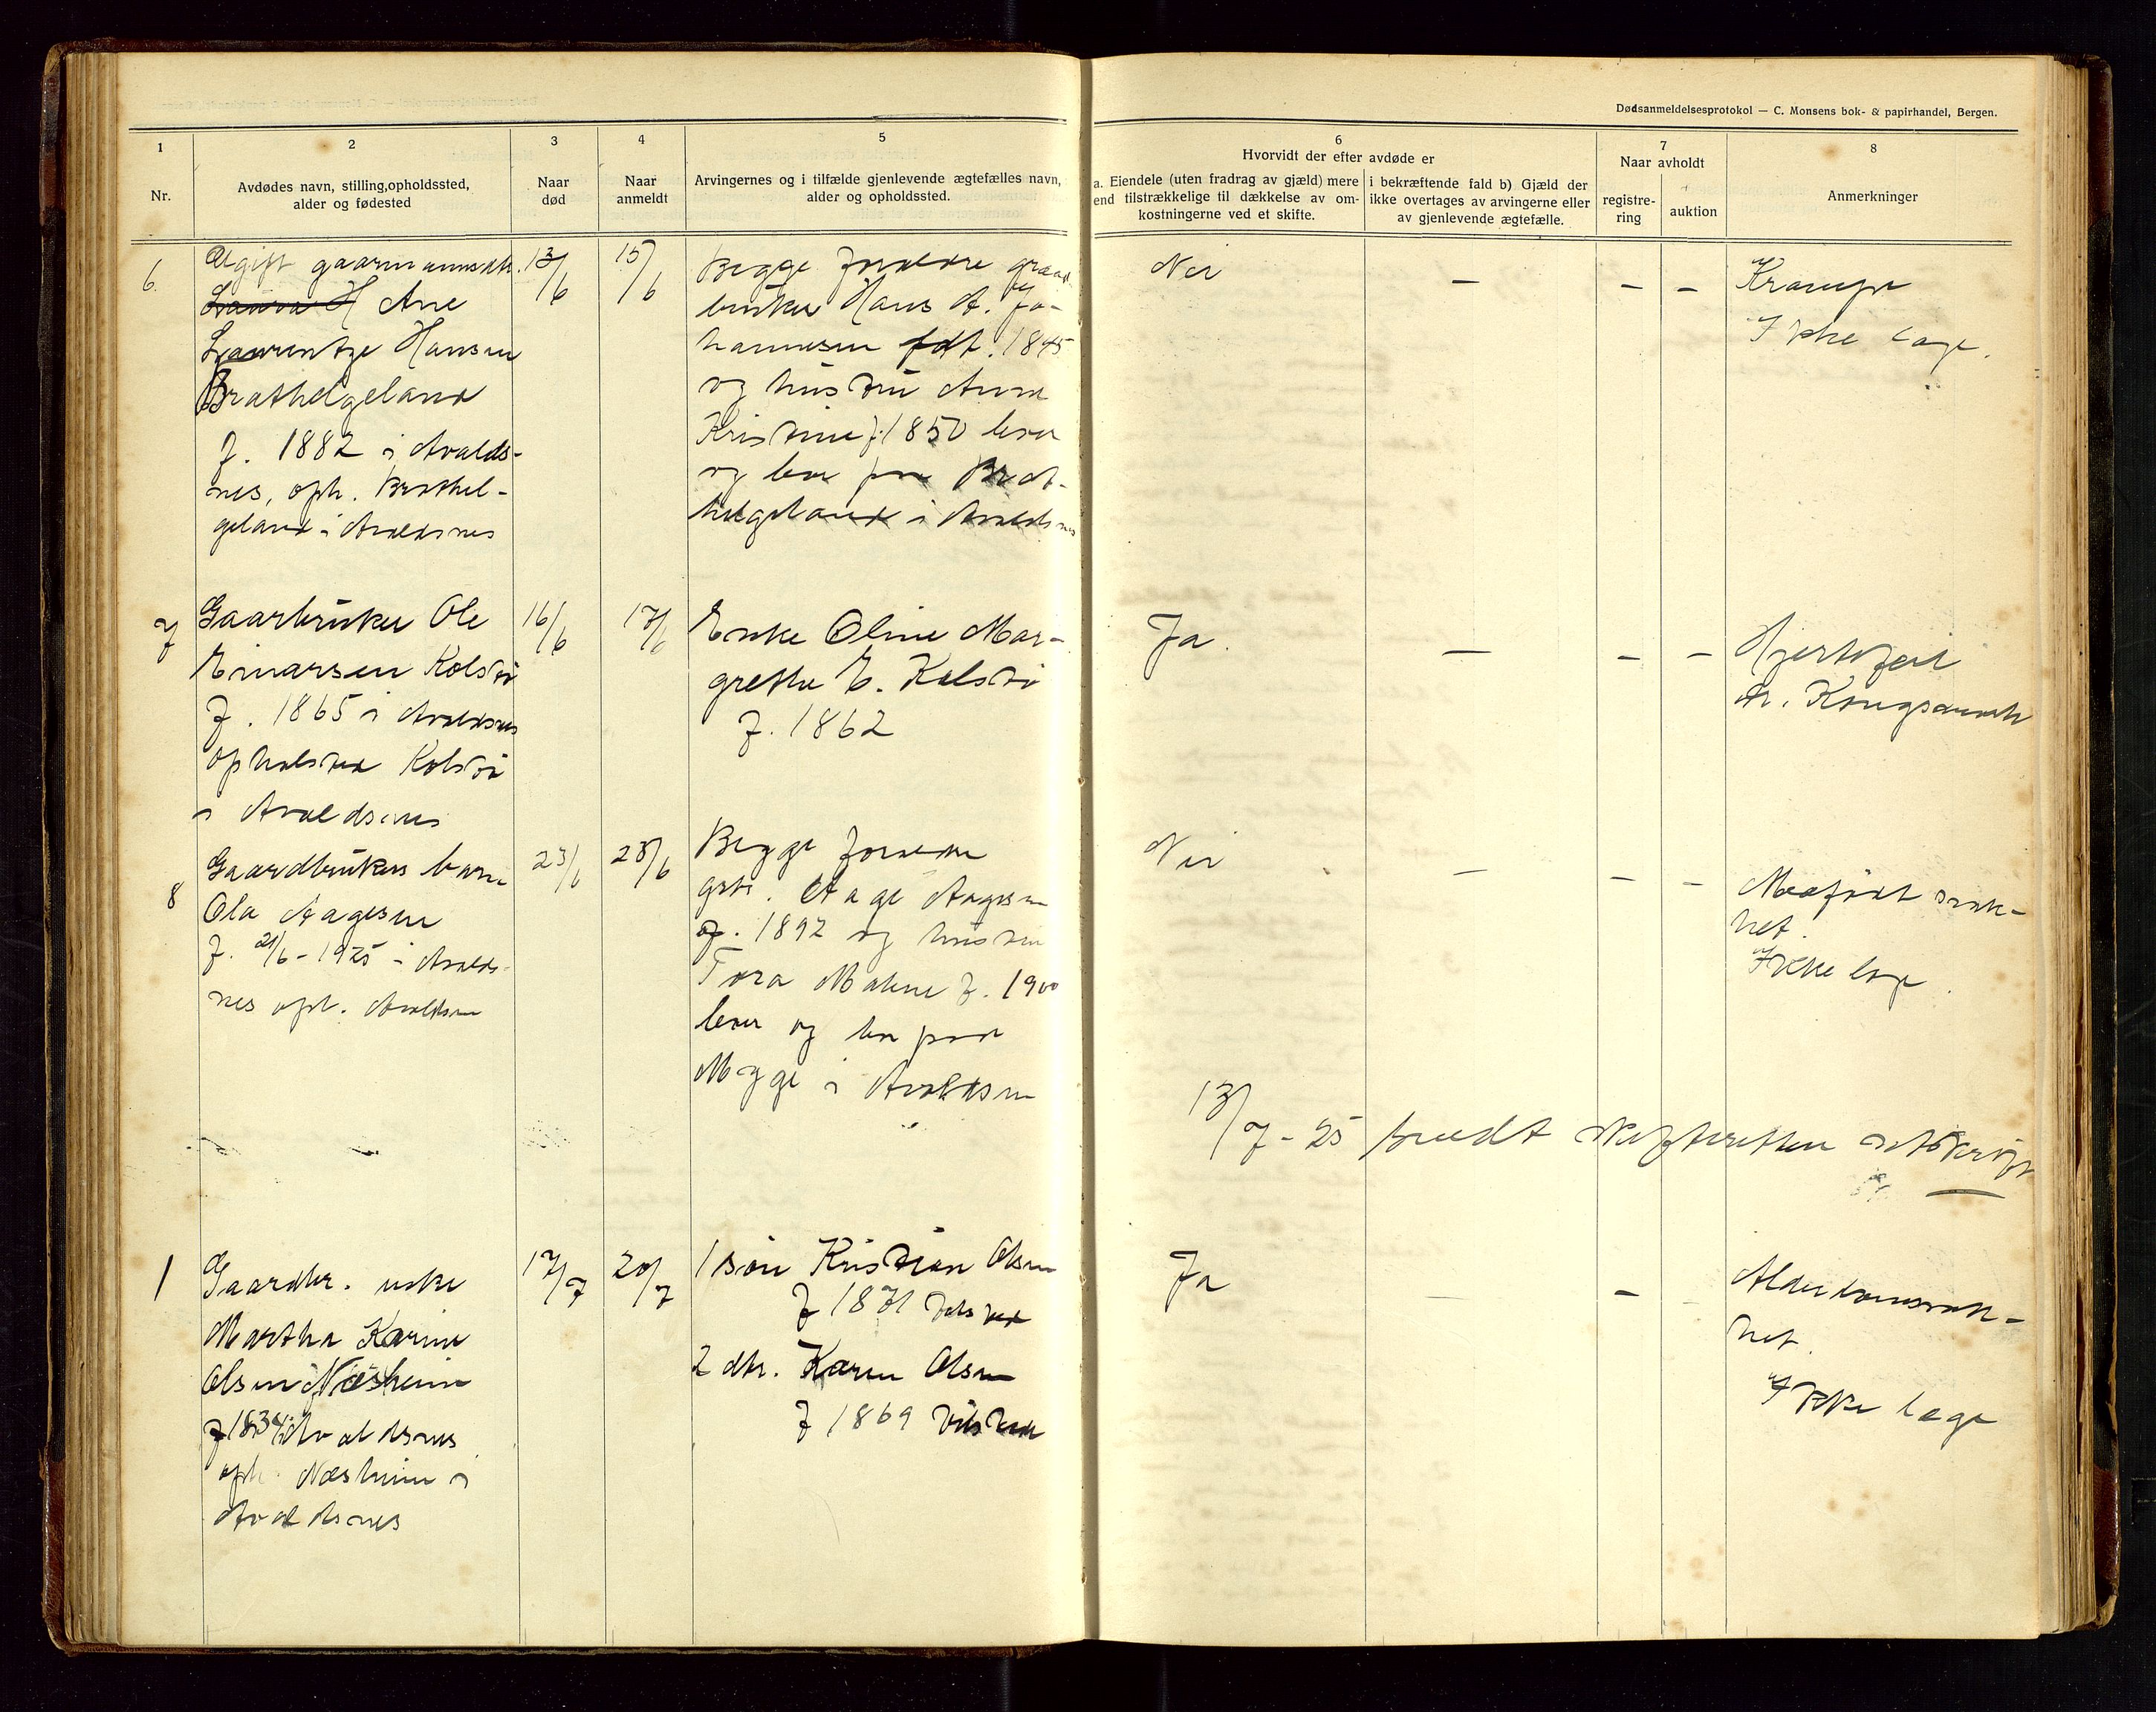 Dødsanmeldelsesprotokol — C. Monsens bok- & papirhandel, Bergen.
1
Nr.
2
Avdødes navn, stilling, opholdssted,
alder og fødested
3
Naar
død
4
Naar
anmeldt
5
Arvingernes og i tilfælde gjenlevende ægtefælles navn,
alder og opholdssted.
6
Hvorvidt der efter avdøde er
a. Eiendele (uten fradrag av gjæld) mere
end tilstrækkelige til dækkelse av om-
kostningerne ved et skifte.
i bekræftende fald b) Gjæld der
ikke overtages av arvingerne eller
av gjenlevende ægtefælle.
7
Naar avholdt
registre-
ring
auktion
8
Anmerkninger
6.
Ugift gaarmannsdtr.
Laura H Ane
Laurentze Hansen
Brathelgeland
f. 1882 i Avalds-
nes, oph. Brathel-
geland i Avaldsnes
13/6
15/6
Begge foreldre graad
bruker Hans A. Jo-
hannesen fdt. 1845
og hustru Anna
Kristine f. 1850 lever
og bor paa Brat-
helgeland i Avaldsnes
Nei
—
—
—
Krampe
Ikke læge.
7
Gaarbruker Ole
Einarsen Kolstø
f. 1865 i Avaldsnes
opholsted Kolstø
i Avaldsnes
16/6
17/6
Enke Oline Mar-
grethe E. Kolstø
f. 1862
Ja.
—
—
—
Hjertefeil
dr. Kongsavik
8
Gaardbrukers barn
Ola Aagesen
f. 21/6-1925 i Avalds-
nes oph. Avaldsnes
23/6
25/6
Begge foreldre
gbr. Aage Aagesen
f. 1892 og hustru
Tora Malene f. 1900
lever og bor paa
Mygge i Avaldsnes
Nei
—
—
—
Medfødt svak-
het.
Ikke læge.
13/7-25 sendt skifteretten utskrift
1
Gaardbr. enke
Martha Karine
Olsen Næsheim
f 1834 i Avaldsnes
oph. Næsheim i
Avaldsnes
17/7
20/7
1 søn Kristian Olsen
f 1871
2 dtr. Karen Olsen
f 1869
Ja
—
—
—
Alderdomssvak-
het.
Ikke læge